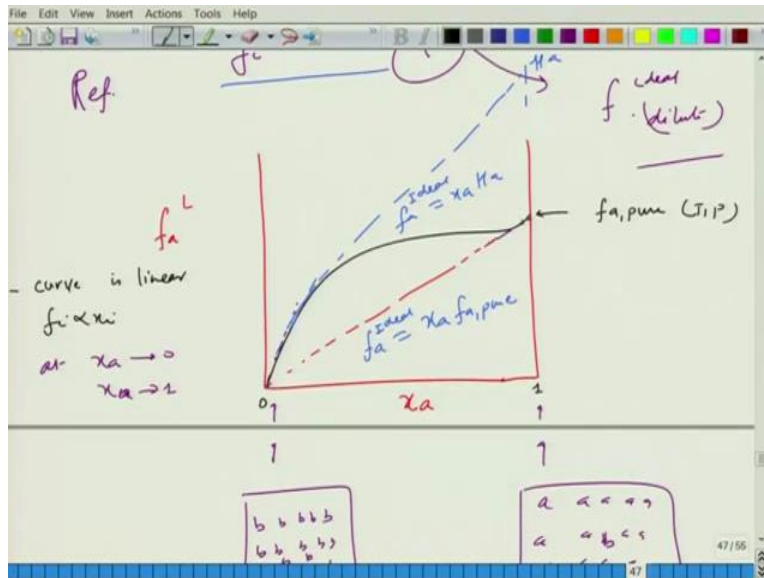 File Edit View Insert Actions Tools Help
B I
Ref.
Ha
f ideal
(dilute)
f_a^L
f_a^Ideal = x_a H_a
f_a,pure (T,P)
- curve is linear
f_i ∝ x_i
at x_a → 0
x_a → 1
f_a^Ideal = x_a f_a,pure
0
x_a
1
b b b b b
a a a a a
b b b b b
a a b a a
b b
47/55
47